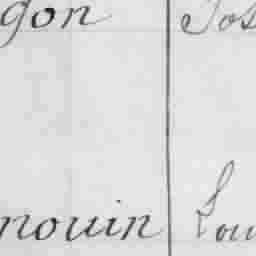 gon Jos
nouin Lou